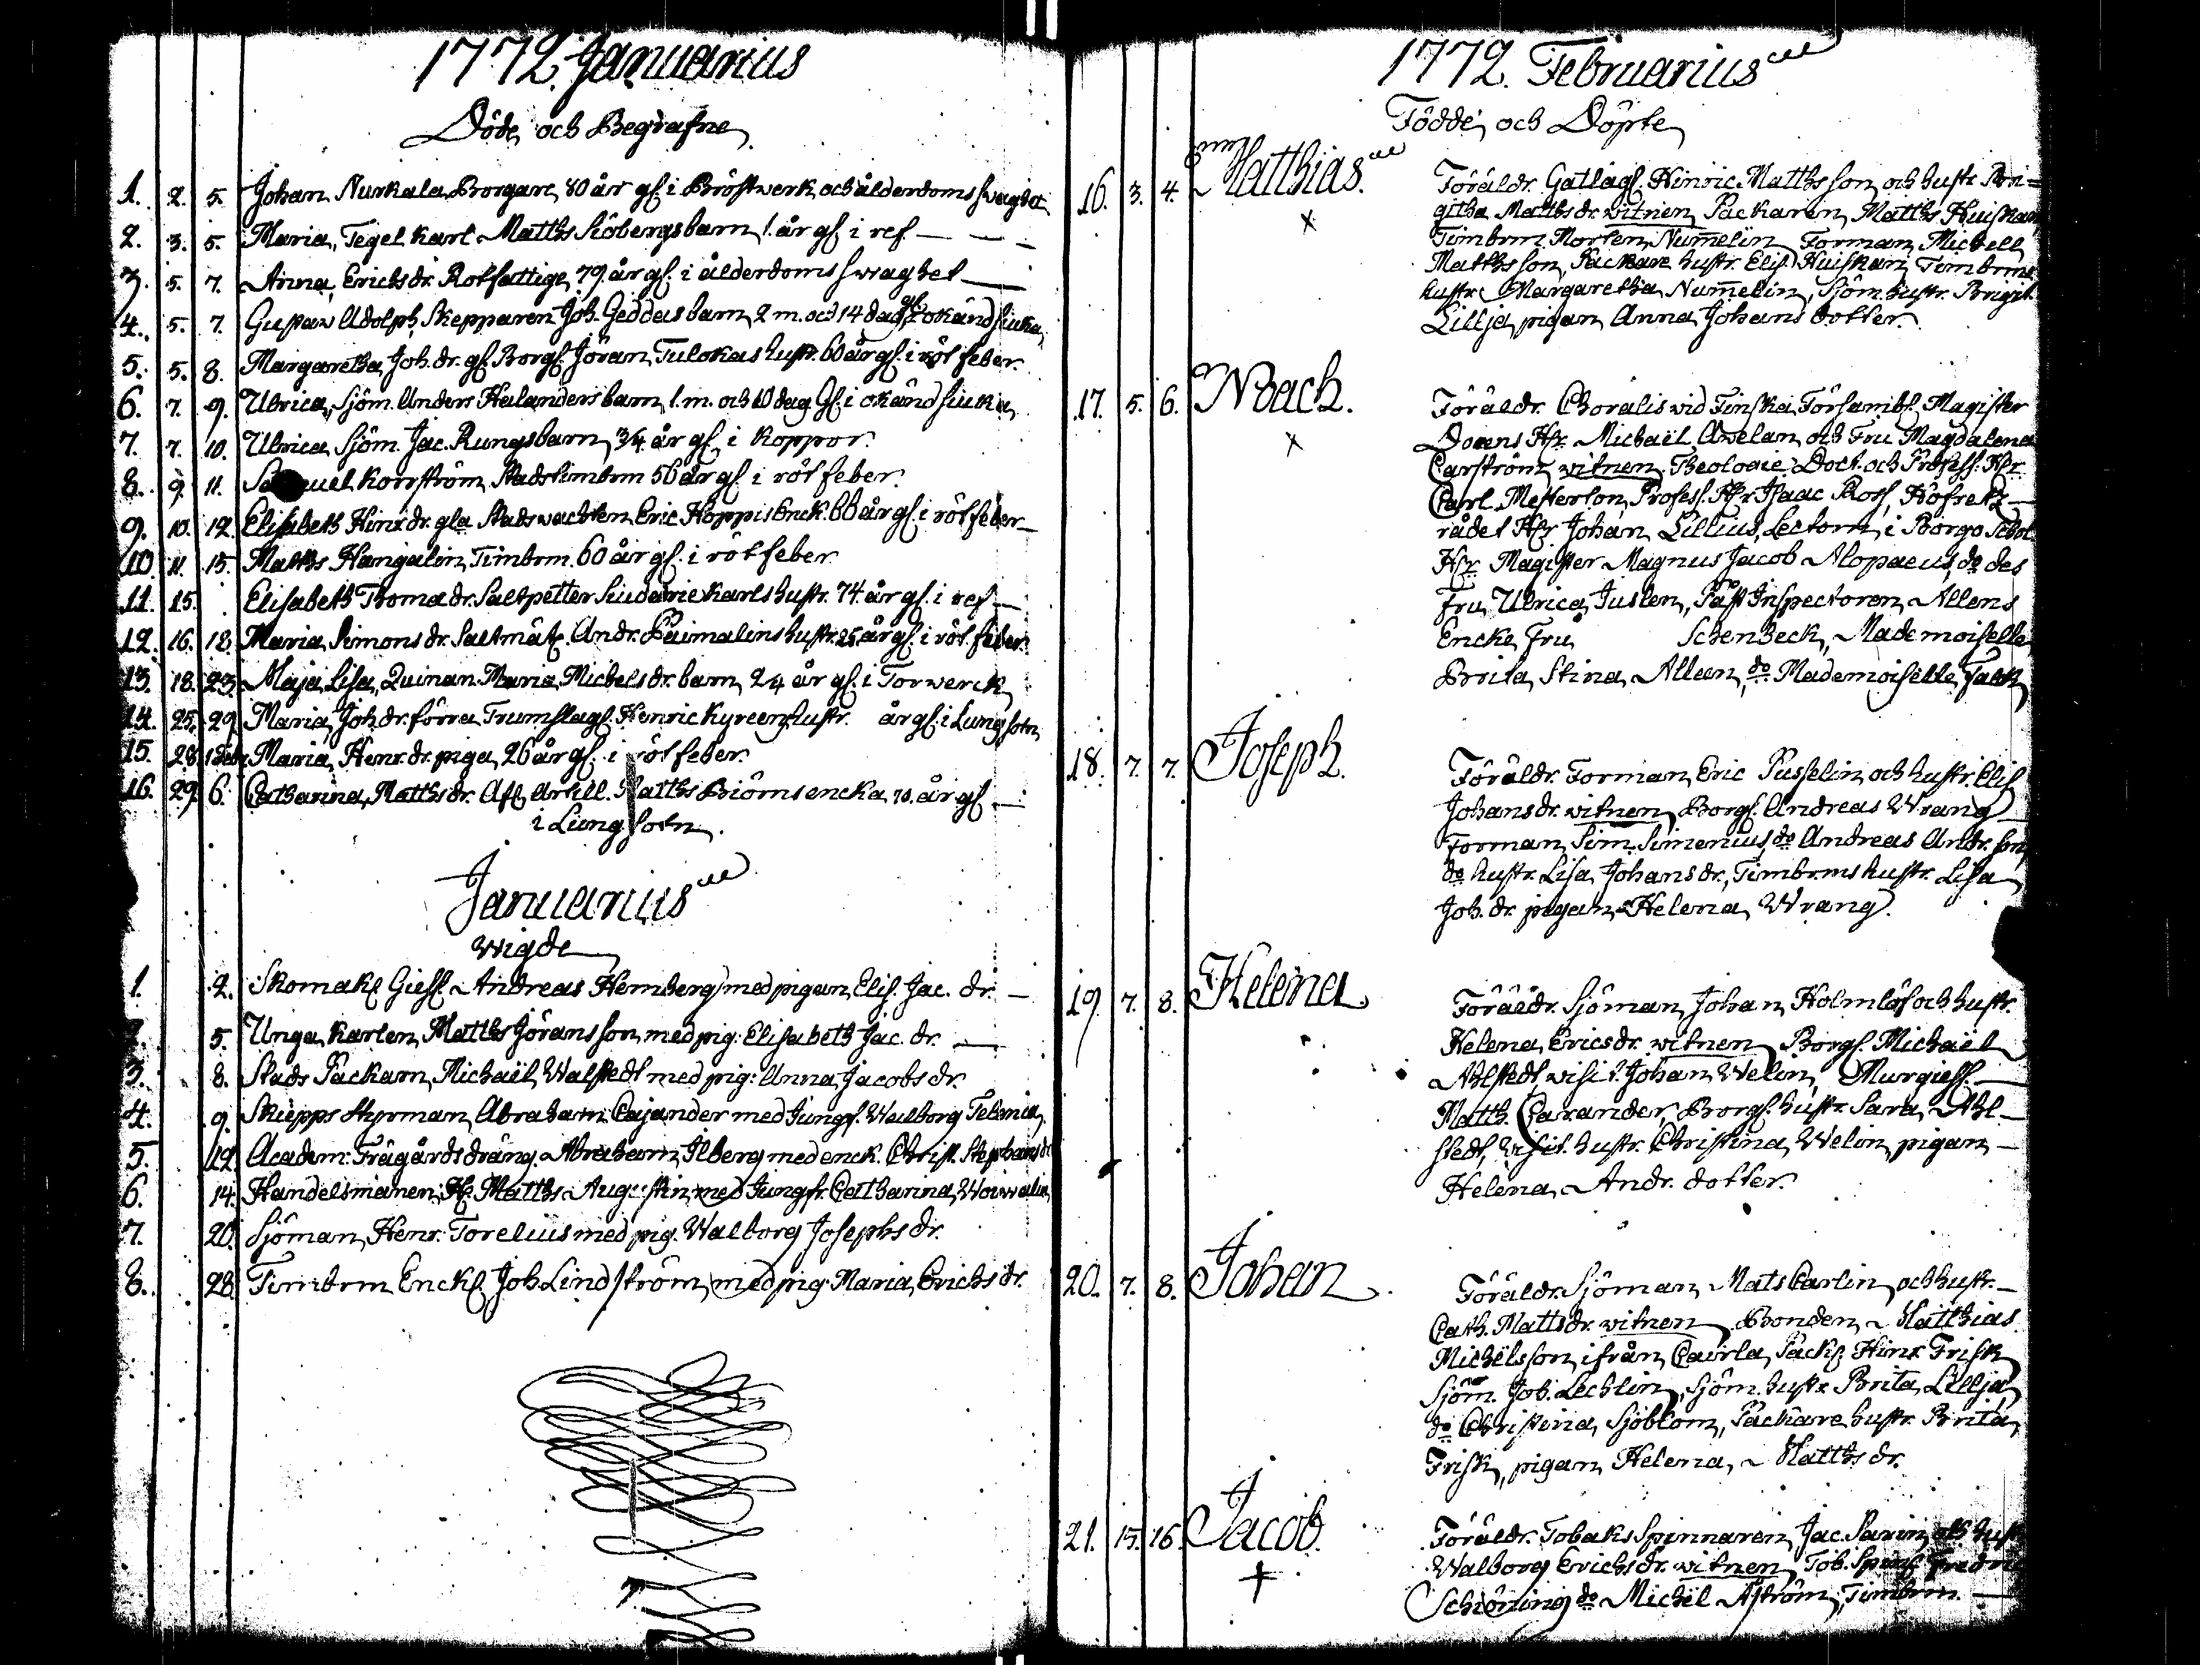 1772. Januarius
Döde och Begrafne
1. 2. 5. Johan Nurkala Borgare, 80 år gl. i Bröstwerk och ålderdoms swaghet
2. 3. 5. Maria, Tegel karl Matths Siöbergs barn 1. år gl. i ref
3. 5. 7. Anna, Erichs dr. Rotfattige, 79. år gl. i ålderdoms swaghet
4. 5. 7. Gustaw Adolph, Skepparen Joh. Geddas barn 2 m. och 14 dag. gl. i okänd siuka
5. 5. 8. Margaretha Joh. dr. gl. Borgl. Jöran Tulokas hustr. 60 år gl. i rötfeber.
6. 7. 9. Ulrica, Sjöm. Anders Helanders barn, 1. m. och 10 dag. Gl. i okänd siuka
7. 7. 10. Ulrica Sjöm. Jac. Rungs barn, 3/4 år gl. i Koppor.
8. 9. 11. Samuel Korrström Stads timbrm 56 år gl. i rötfeber.
9. 10. 12. Elisabeth Hinr. dr. gla Stadswachten Eric Hoppis Enck. 60 år gl. i rötfeber
10. 11. 15. Matths Hangelin, Timbrm. 60 år gl. i rötfeber
11. 15. Elisabeth Thoma dr. Saltpetter Siuderie karls hustr. 74 år gl. i ref
12. 16. 18. Maria Simons dr. Saltmät. Andr. Paimalins hustr. 25 år gl. i röt feber
13. 18. 23. Maja Lisa, Quinan Maria Michels dr. barn, 2 1/4 år gl. i Torwerck
14. 25. 29. Maria, Joh. dr. förra Trumslagl. Henric Kyreens hustr. år gl. i Lungsotn
15. 28. 1 Febr. Maria, Henr. dr. piga, 26 år gl. i rötfeber.
16. 29. 6. Catharina, Matths dr. Afl. Artill. Matths Biörns encka, 70. år gl.
i Lungsotn.
Januarius
wigde
1. 2. Skomak. Giesl. Andreas Hemberg med pigan Elis. Jac. dr.
2. 5. Unga Karlen, Matths Jörans son, med pig: Elisabeth Jac. dr.
3. 8. Stads Packarn, Michaël, Walstedt med pig: Anna Jacobs dr.
4. 9. Skiepps Styrman Abraham Cajander med Jungf. Walborg Telenia
5. 12. Academ: Trägårdsdräng. Abraham Ilberg med enck. Christ. Stephans dr
6. 14. Handelsmanen, Hr. Matths Augustin med Jungfr. Catharina Woiwalin
7. 20. Sjöman, Henr. Torelius med pig. Walborg Josephs dr.
8. 28. Timbrm Enckl. Joh. Lindström, med pig. Maria, Erichs dr.
1772. Februarius
Födde och Döpte
16. 3. 4. Matthias. Föräldr. Gatlägl. Hinric Matths son och hustr. Bri=
githa Matths dr. witnen, Packaren, Matths Huiskari
Timbrm Morten, Nummelin, Forman, Michell
Matths son, Packare hustr. Elis. Huiskari, Timbrms
hustr. Margaretha Nummelin, Sjöm. hustr. Brigit.
Lillja, pigan Anna Johans dotter.
17. 5. 6. Noach. Föräldr. Choralis wid Finska Församlf. Magister
Docens Hr. Michaël Awelan och Fru Magdalena
Carström, witnen, Theologie Doct. och Profess. Hr.
Carl Mesterton, Profess. Hr Isaac Ross, Hofretz
rådet Hr Johan Lillius, Lectorn i Borgo Schol.
Hr. Magister Magnus Jacob Alopaeus, do des
Fru, Ulrica Juslen, Påst Inspectoren Allens
Encke Fru Schenbeck, Mademoiselle
Brita Stina Alleen, do Mademoiselle Falck
18. 7. 7. Joseph. Föräldr. Forman, Eric Pusselin, och hustr. Elis
Johans dr. witnen, Borgl. Andreas Wrang
Forman, Sim. Simenius, do Andreas Andr. son
do hustr. Lisa Johans dr., Timbrms hustr. Lisa
Joh. dr. pigan, Helena, Wrang.
19. 7. 8. Helena. Föräldr. Sjöman, Johan, Holmlöf och hustr.
Helena, Erics dr. witnen, Borgl. Michaël
Ahlstedt, wisit. Johan Welin, Murgiesl.
Matth. Caxander, Borgl. hustr. Sara Ahl-
stedt, wisit. hustr. Christina, Welin, pigan
Helena, Andr. dotter.
20. 7. 8. Johan. Föräldr. Sjöman, Mats Carlin, och hustr.
Cath. Matts dr. witnen, Bonden, Matthias
Michëls son, ifrån, Caerla, Packl. Hinr. Frisk
Sjöm. Joh. Lechlin, Sjöm. hustr. Brita, Lillja
do Christina, Sjöblom, Packare hustr. Brita
Frisk, pigan, Helena, Matths dr.
21. 15. 16. Jacob. Föräldr. Tobaks Spinnaren Jac. Parin, och hustr
Walborg Erichs dr. witnen, Tob. Spinl. Fredric
Schiöning do Michël Åström, Timbrm.